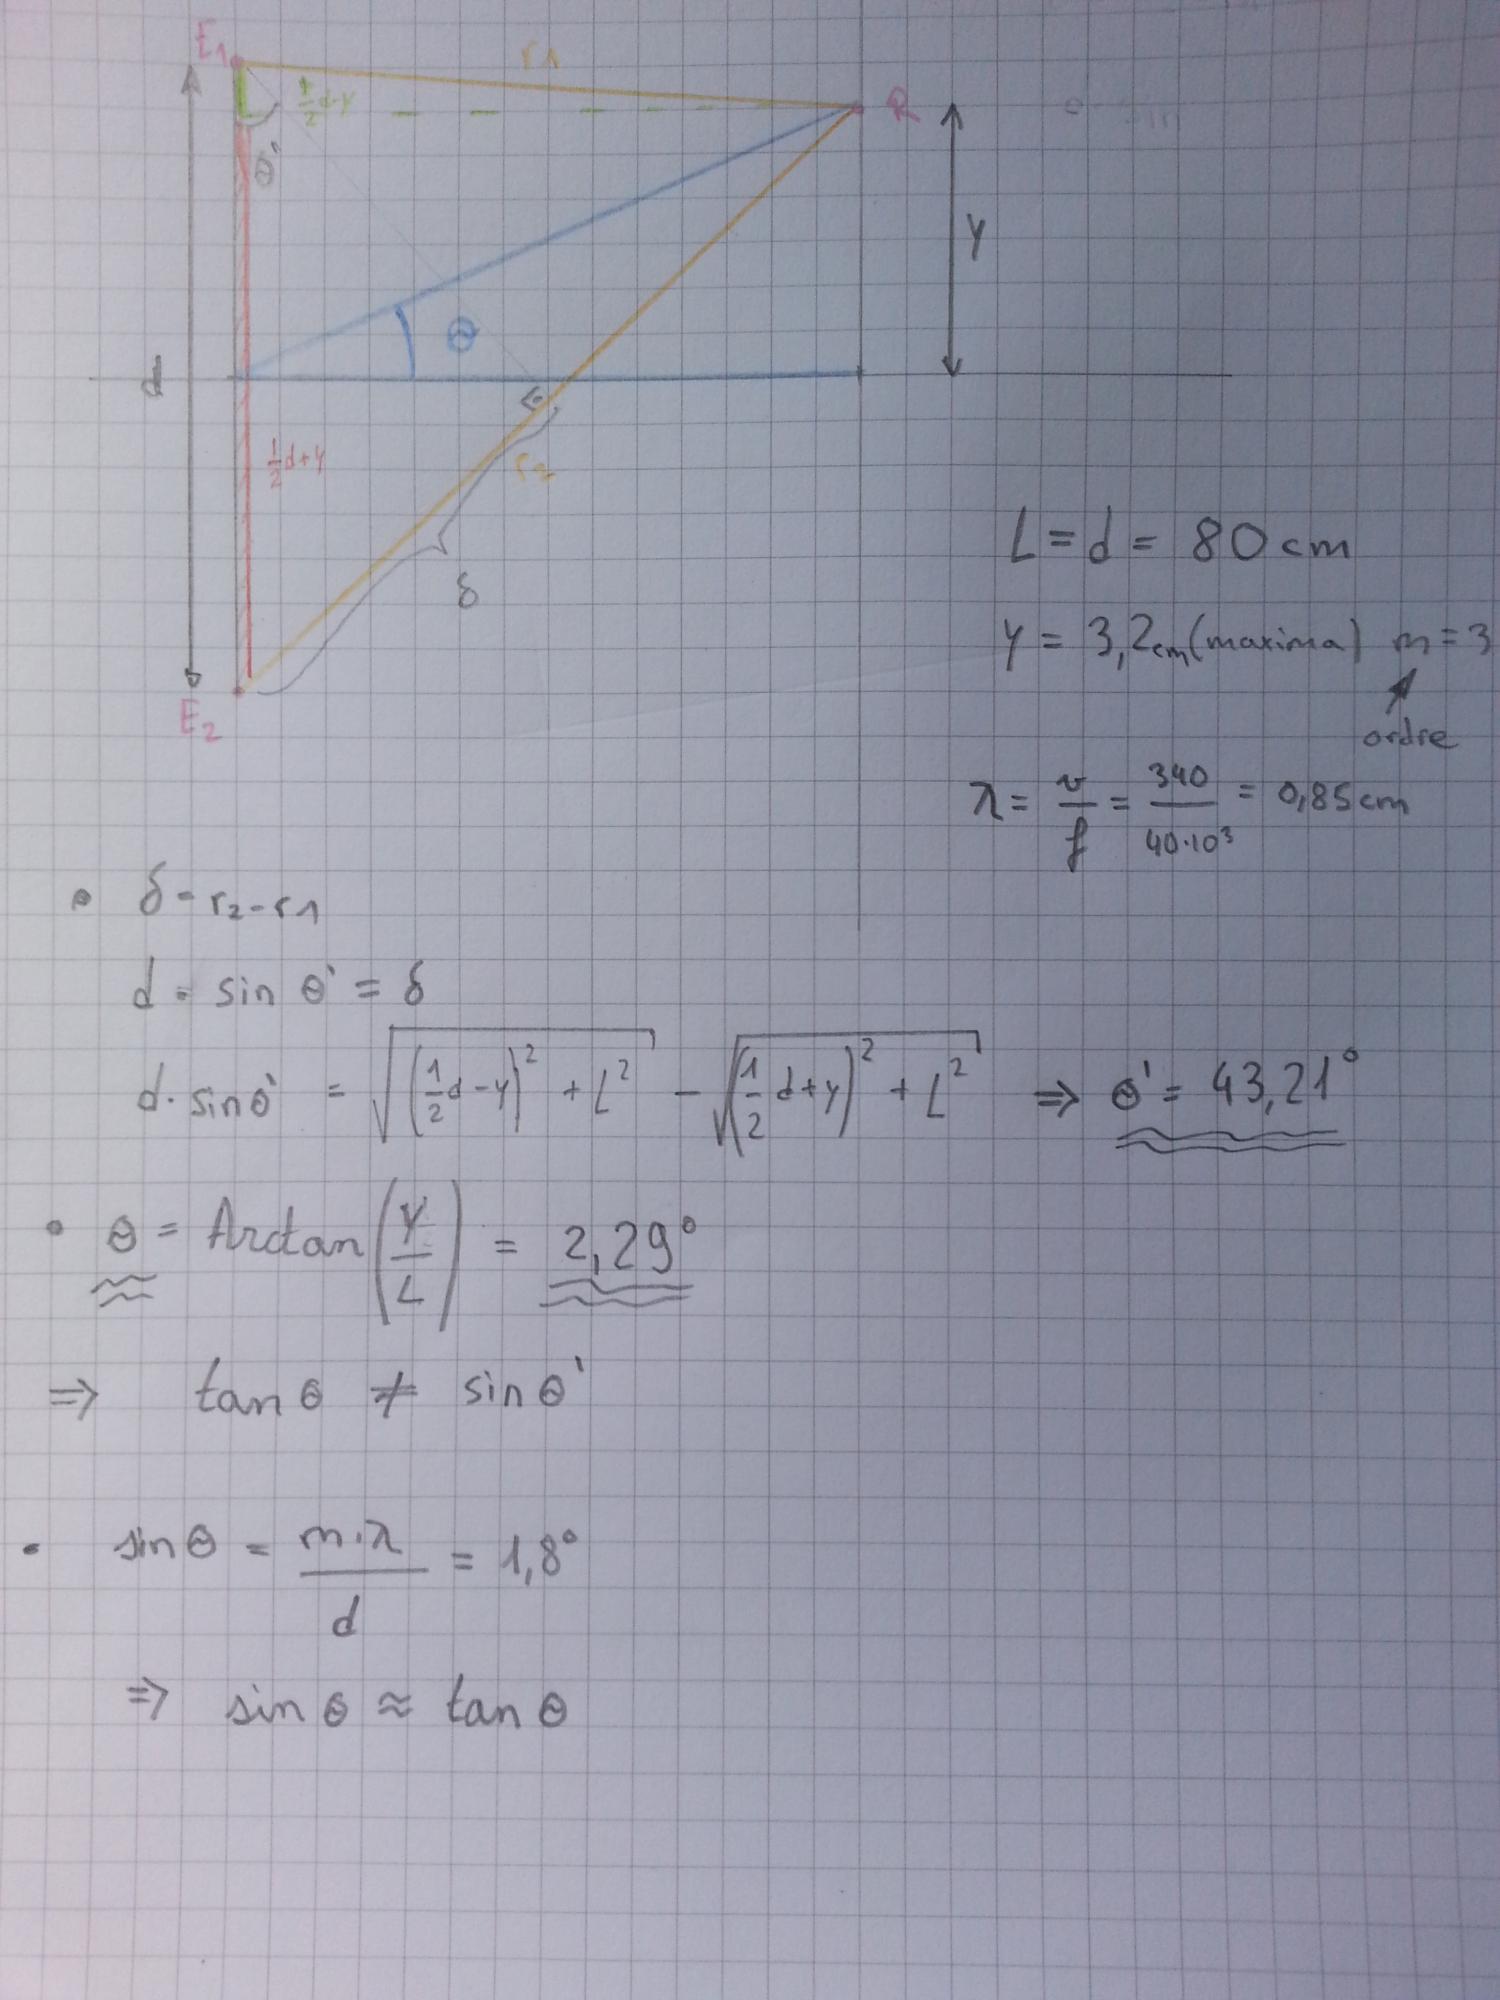 E1
r1
1/2 d-y
R
θ'
y
θ
d
1/2 d+y
r2
δ
L = d = 80 cm
y = 3,2cm (maxima) m = 3
ordre
λ = v/f = 340/40·10³ = 0,85 cm
E2
• δ = r2 - r1
d · sin θ' = δ
d · sin θ' = √((1/2 d - y)² + L²) - √((1/2 d + y)² + L²) ⇒ θ' = 43,21°
• θ = Arctan(y/L) = 2,29°
⇒ tan θ ≠ sin θ'
• sin θ = m·λ/d = 1,8°
⇒ sin θ ≈ tan θ